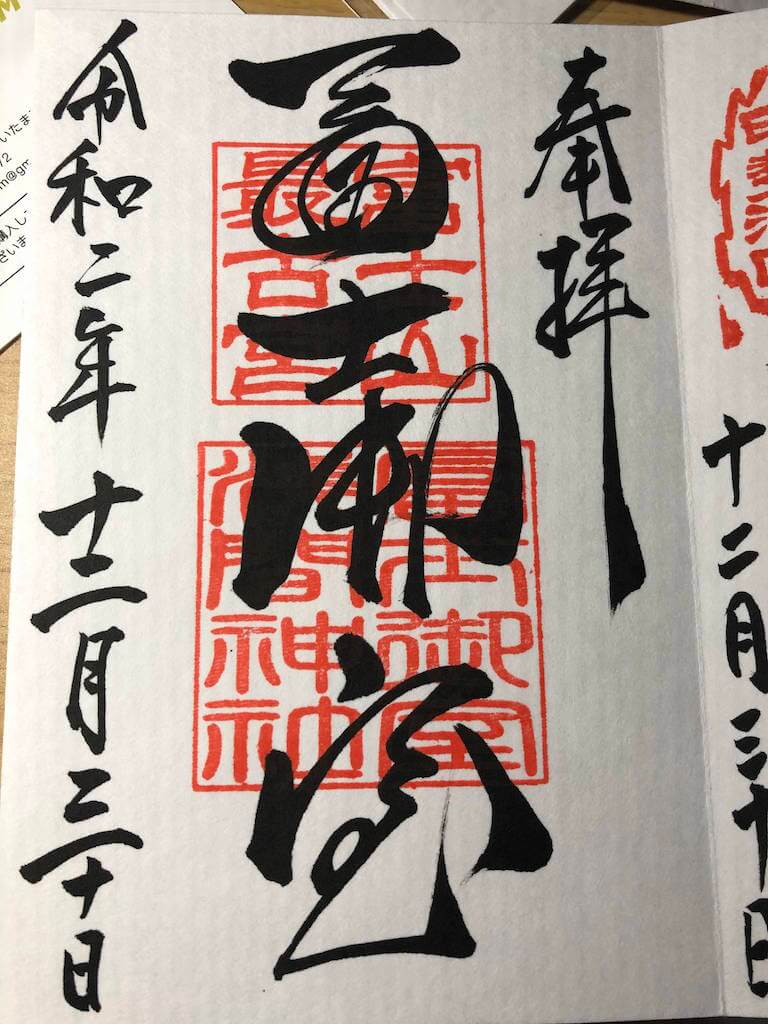 十二月三十日
奉拝
冨士御室
富士山
最古宮
冨士御室
浅間神社
令和二年十二月三十日
いたま
m@gm
購入し
ざいま